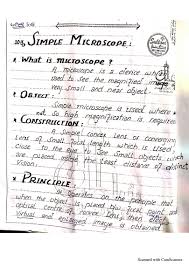 SIMPLE MICROSCOPE :
* What is MICROSCOPE ?
A microscope is a device which
used to see the magnified image of
very small and near object.
* OBJECT :
Simple microscope is used where
not so high magnification is required
* CONSTRUCTION :
A Simple convex Lens or converging
Lens of small focal length which is used
close to the eye to see small objects which
are placed inside the least distance of
vision.
* PRINCIPLE
It operates on the principle that
when object is placed b/w focal point and
optical centre of convex lens, then
virtual and enlarged image is obtained
Scanned with CamScanner